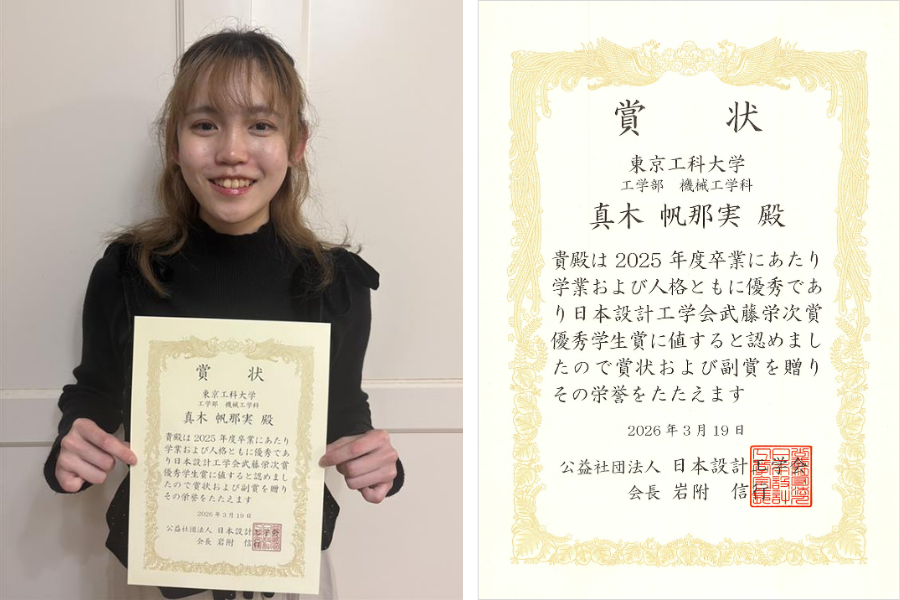 賞 状
東京工科大学
工学部 機械工学科
真木 帆那実 殿
貴殿は 2025 年度卒業にあたり
学業および人格ともに優秀であ
り日本設計工学会武藤栄次賞
優秀学生賞に値すると認めまし
たので賞状および副賞を贈り
その栄誉をたたえます
2026 年 3 月 19 日
公益社団法人 日本設計工学会
会長 岩附 信
賞 状
東京工科大学
工学部 機械工学科
真木 帆那実 殿
貴殿は 2025 年度卒業にあたり
学業および人格ともに優秀であ
り日本設計工学会武藤栄次賞
優秀学生賞に値すると認めまし
たので賞状および副賞を贈り
その栄誉をたたえます
2026 年 3 月 19 日
公益社団法人 日本設計工学会
会長 岩附 信